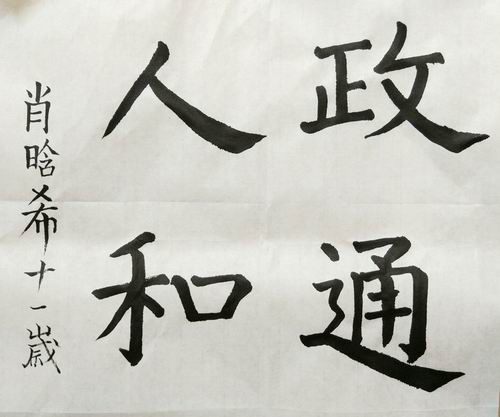 政通
人和
肖晗希十一歳